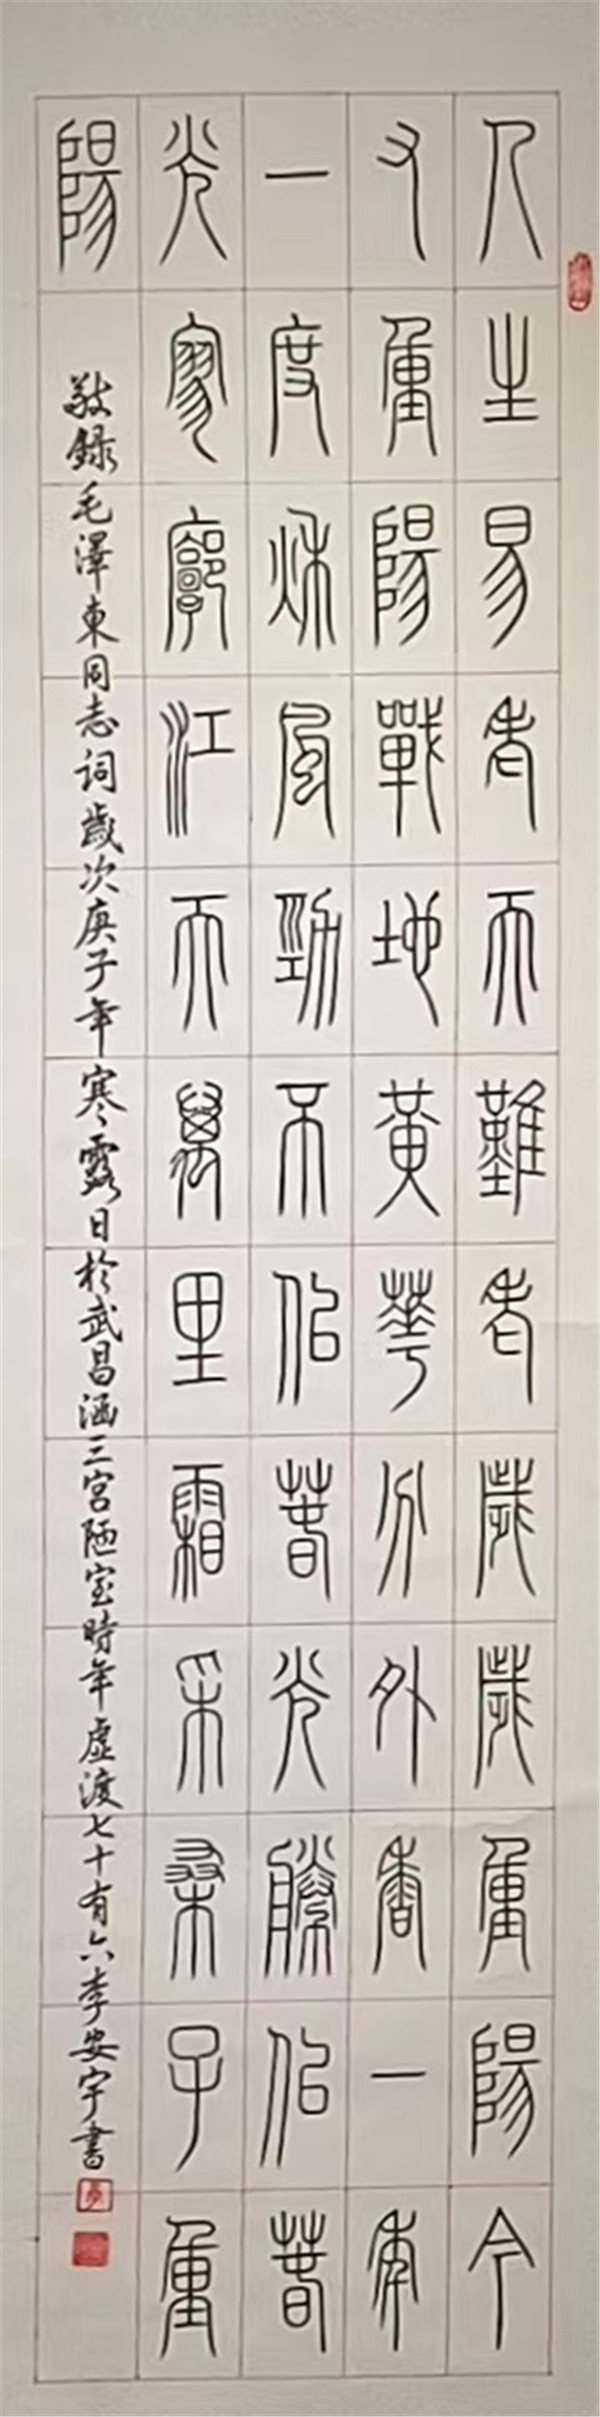 人生易老天難老歲歲重陽今
又重陽戰地黃華分外香一年
一度秋風勁不似春光勝似春
光寥廓江天萬里霜采桑子重
陽
敬錄毛澤東同志詞歲次庚子年寒露日於武昌涵三宮陋室時年虛渡七十有六李安宇書